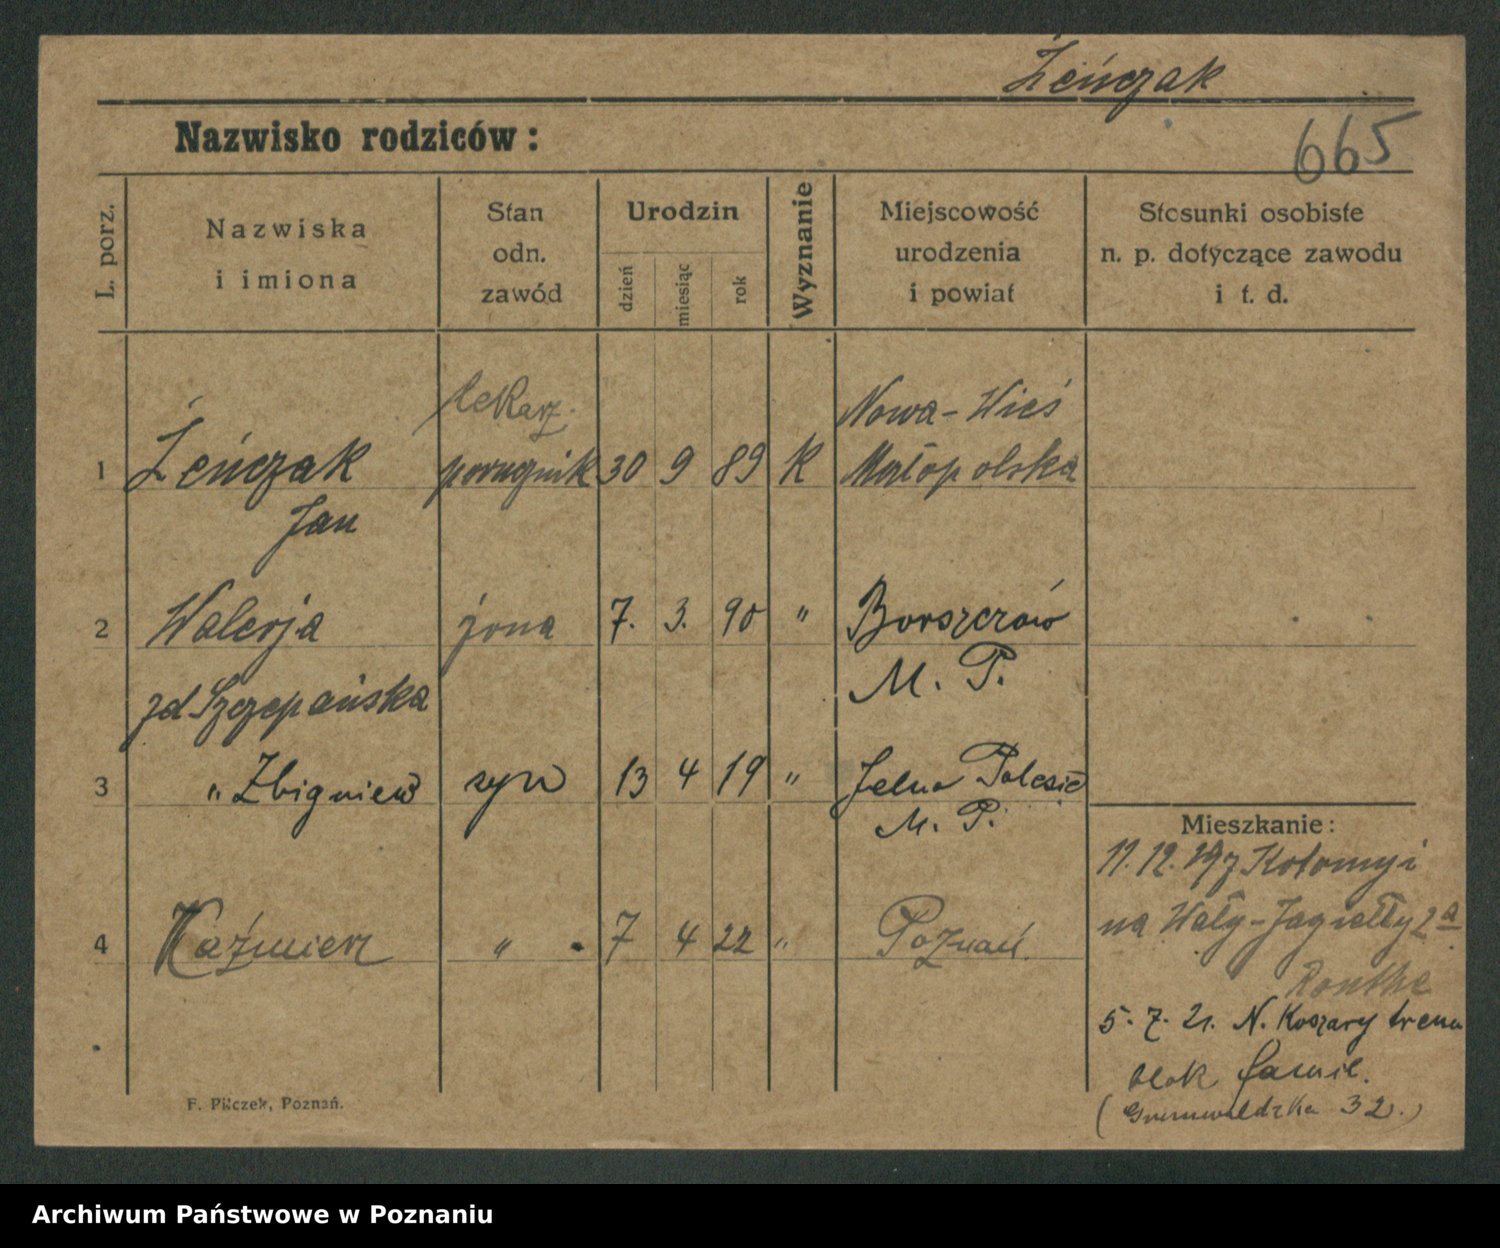 Żeńczak
Nazwisko rodziców:
665
L. porz.
Nazwiska
i imiona
Stan
odn.
zawód
Urodzin
dzień
miesiąc
rok
Wyznanie
Miejscowość
urodzenia
i powiat
Stosunki osobiste
n. p. dotyczące zawodu
i t. d.
lekarz.
Nowa-Wieś
1 Żeńczak porucznik 30 9 89 K Małopolska
Jan
2 Walerja żona 7. 3. 90 " Borszczów
M. P.
zd Szczepańska
3 " Zbigniew syn 13 4 19 " Jelna Polesie
M. P.
Mieszkanie:
11. 12. 19 z Kołomyi
na Wały-Jagiełły 2a
4 Kaźmierz " 7 4 22 " Poznań.
5. 7. 21. N. Koszary trenu
blok famil.
(Grunwaldzka 32.)
F. Pilczek, Poznań.
Archiwum Państwowe w Poznaniu